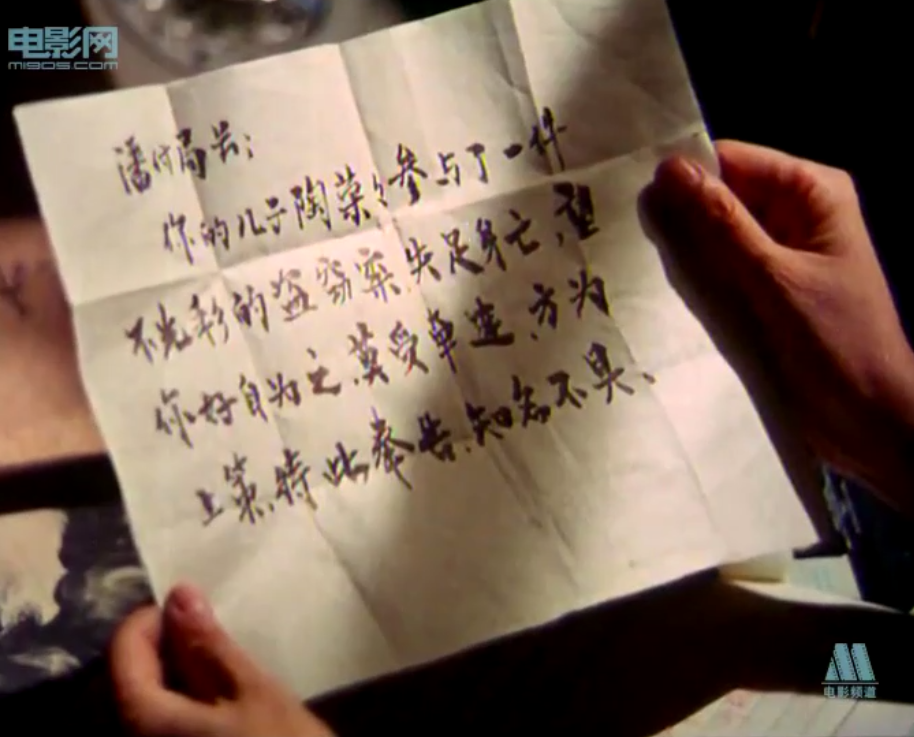 电影网
m1905.com
潘付局长:
你的儿子陶参与了一件
不光彩的盗窃案失足身亡,望
你好自为之,莫受牵连,方为
上策,特此奉告,知名不具.
电影频道